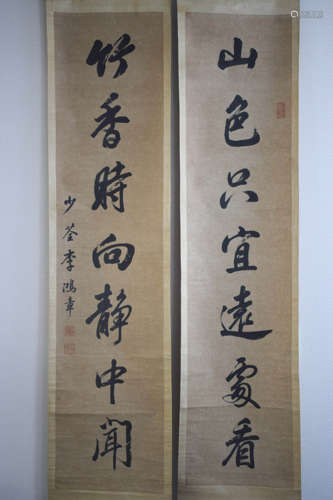 山色只宜遠處看
竹香時向靜中聞
少荃李鴻章